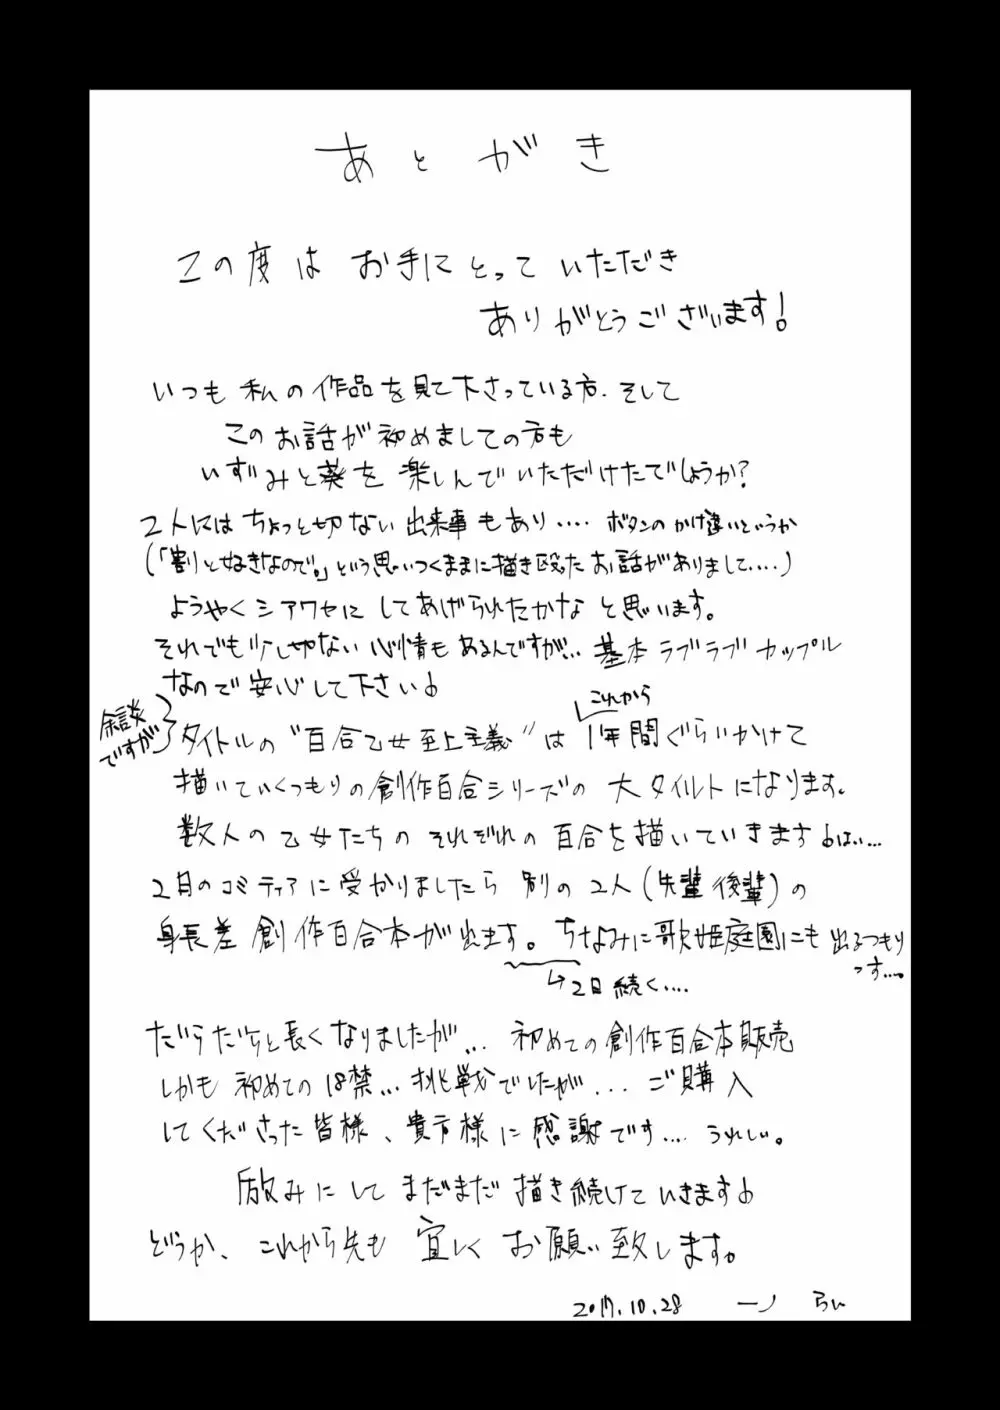 あとがき
この度は お手にとって いただき
ありがとうございます!
いつも 私の作品を見て下さっている方、そして
このお話が初めましての方も
いずみと葵を 楽しんでいただけたでしょうか?
2人にはちょっと切ない出来事もあり.... ボタンのかけ違いというか
(「割と好きなので。」という思いつくままに描き殴ったお話がありまして....)
ようやくシアワセに してあげられたかな と思います。
それでも少し切ない心情もあるんですが... 基本ラブラブカップル
なので安心して下さい♪
余談ですが
これから
タイトルの“百合乙女至上主義”は 1年間ぐらいかけて
描いていくつもりの創作百合シリーズの 大タイルトになります。
数人の乙女たちの それぞれの百合を描いていきます♪はい...
2月のコミティアに受かりましたら 別の2人(先輩後輩)の
身長差創作百合本が出ます。ちなみに歌姫庭園にも出るつもり
っす....。
→2日続く....
だらだらと長くなりましたが... 初めての創作百合本販売
しかも 初めての18禁... 挑戦でしたが... ご購入
してくださった皆様、貴方様に感謝です.... うれしい。
励みにして まだまだ 描き続けていきます♪
どうか、これから先も 宜しく お願い致します。
2017.10.28 一ノ